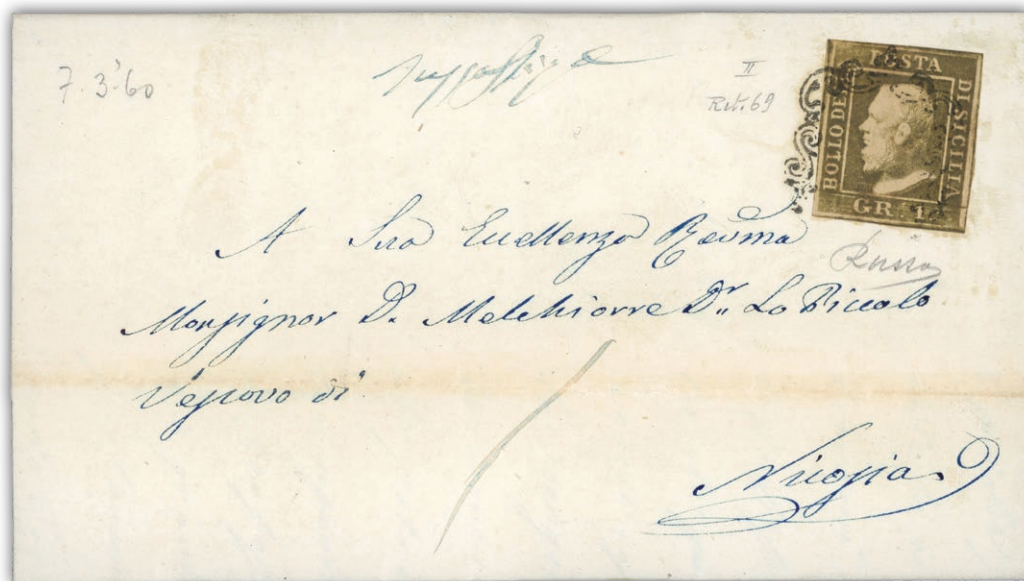 7.3.'60
II
Rit. 69
POSTA
BOLLO DE
DI SICILIA
GR. 1
A Sua Eccellenza Revma
Monsignor Dn. Melchiorre Dr. Lo Piccolo
Vescovo di
Nicosia